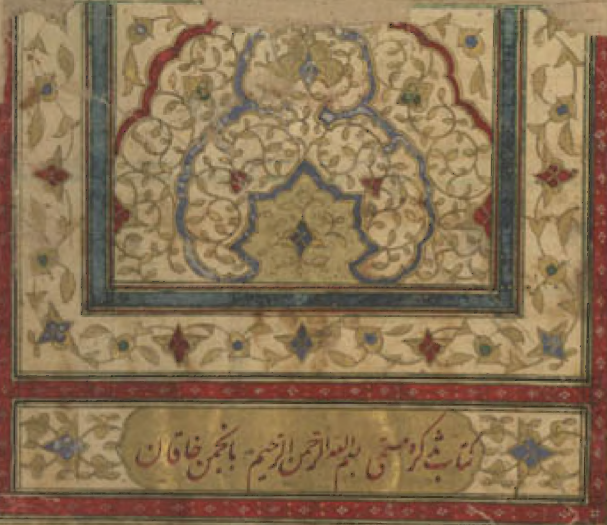 کتاب تذکره مسمی بسم الله الرحمن الرحیم بانجمن خاقان